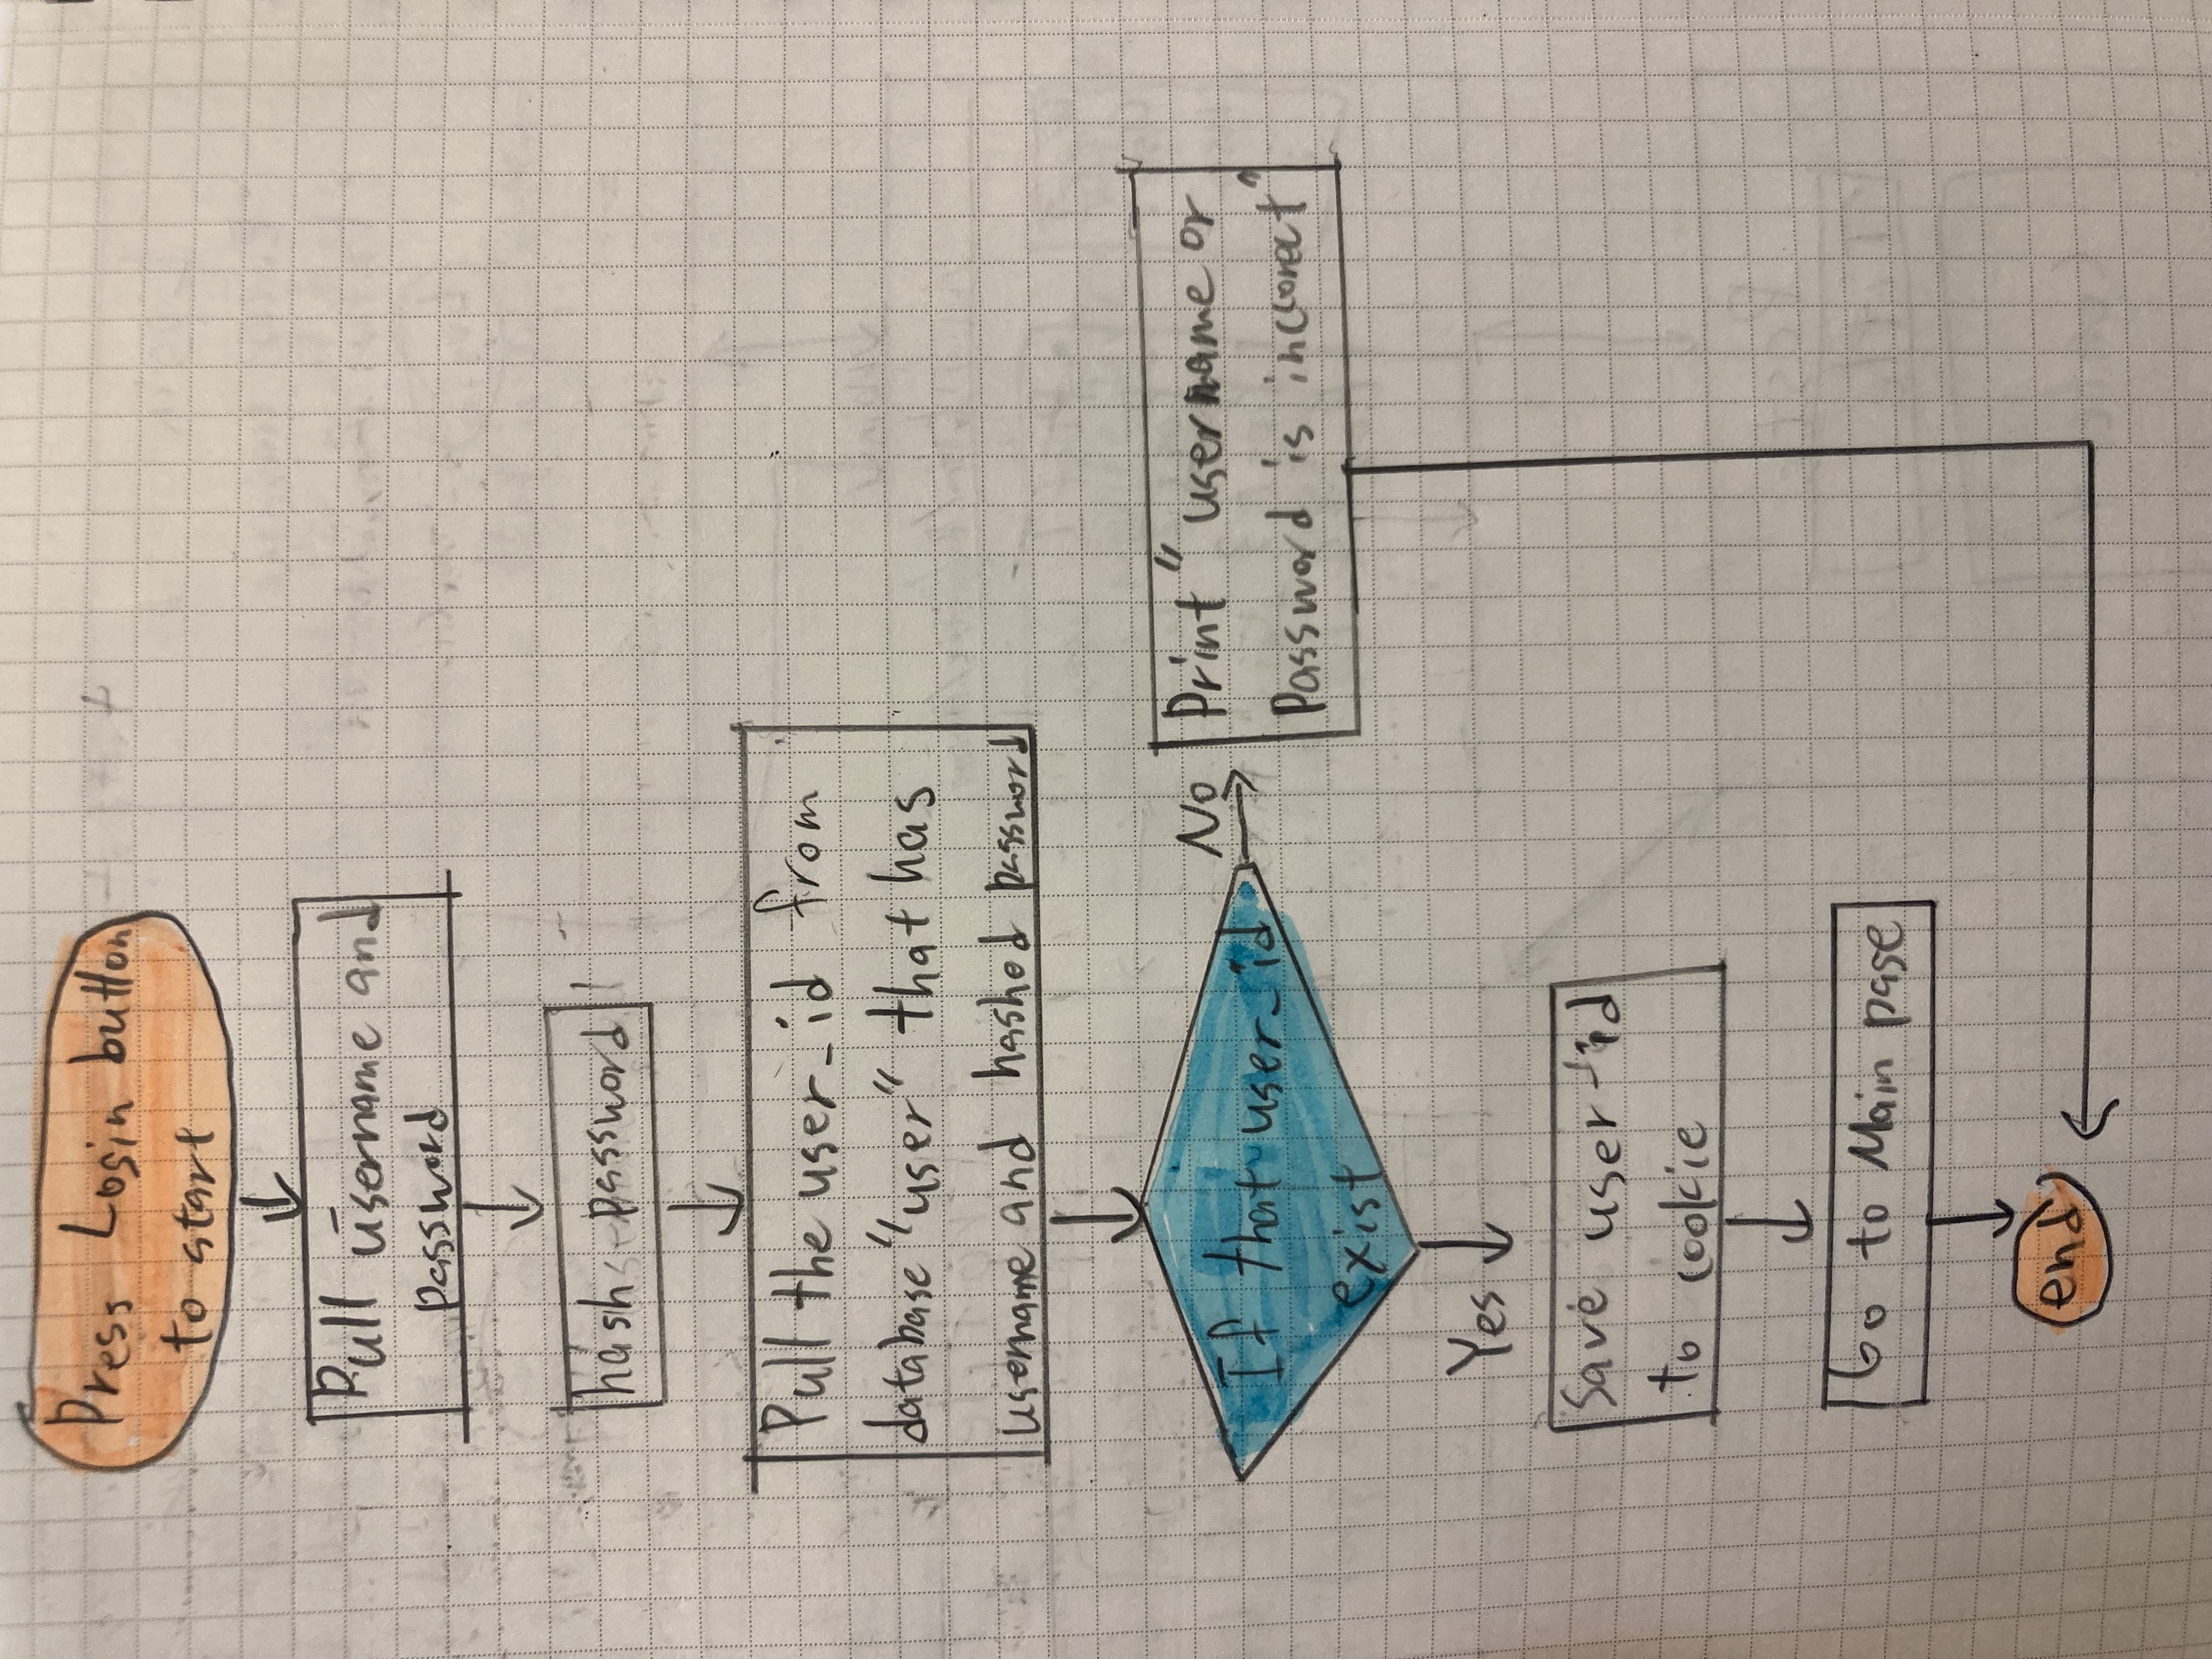 Press Login button
to start
Pull username and
password
hash password
Pull the user_id from
database "user" that has
username and hashed password
If that user_id
exist
No
Print "username or
Password is incorrect"
Yes
Save user_id
to cookie
Go to Main page
end